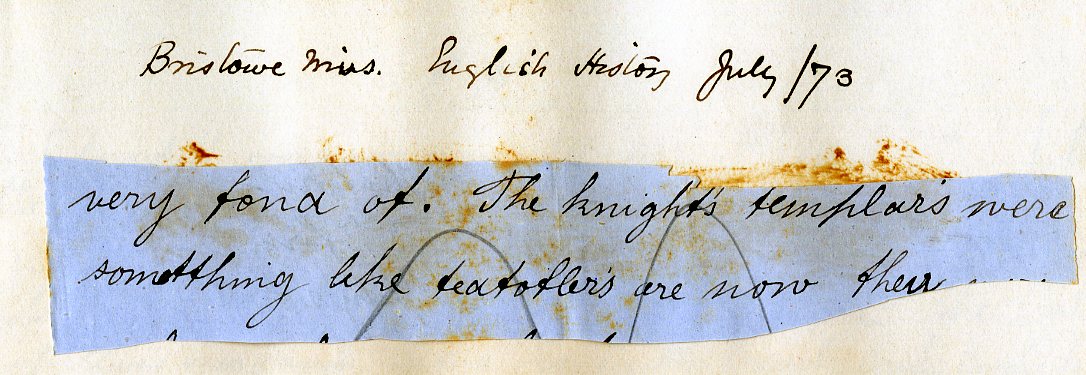 Bristowe Miss. English History July /73
very fond of. The knight's templar's were
sometthing like teatotler's are now they